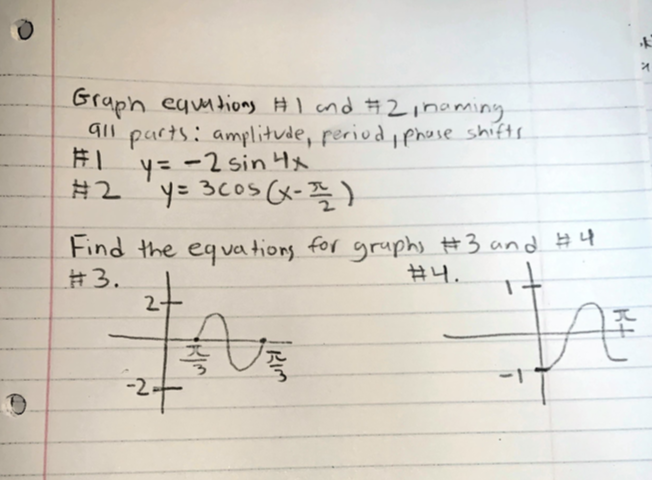 Graph equations #1 and #2, naming
all parts: amplitude, period, phase shifts
#1 y = -2 sin 4x
#2 y = 3cos (x - π/2)
Find the equations for graphs #3 and #4
#3. #4.
2 1
π/3 π/3 π
-2 -1